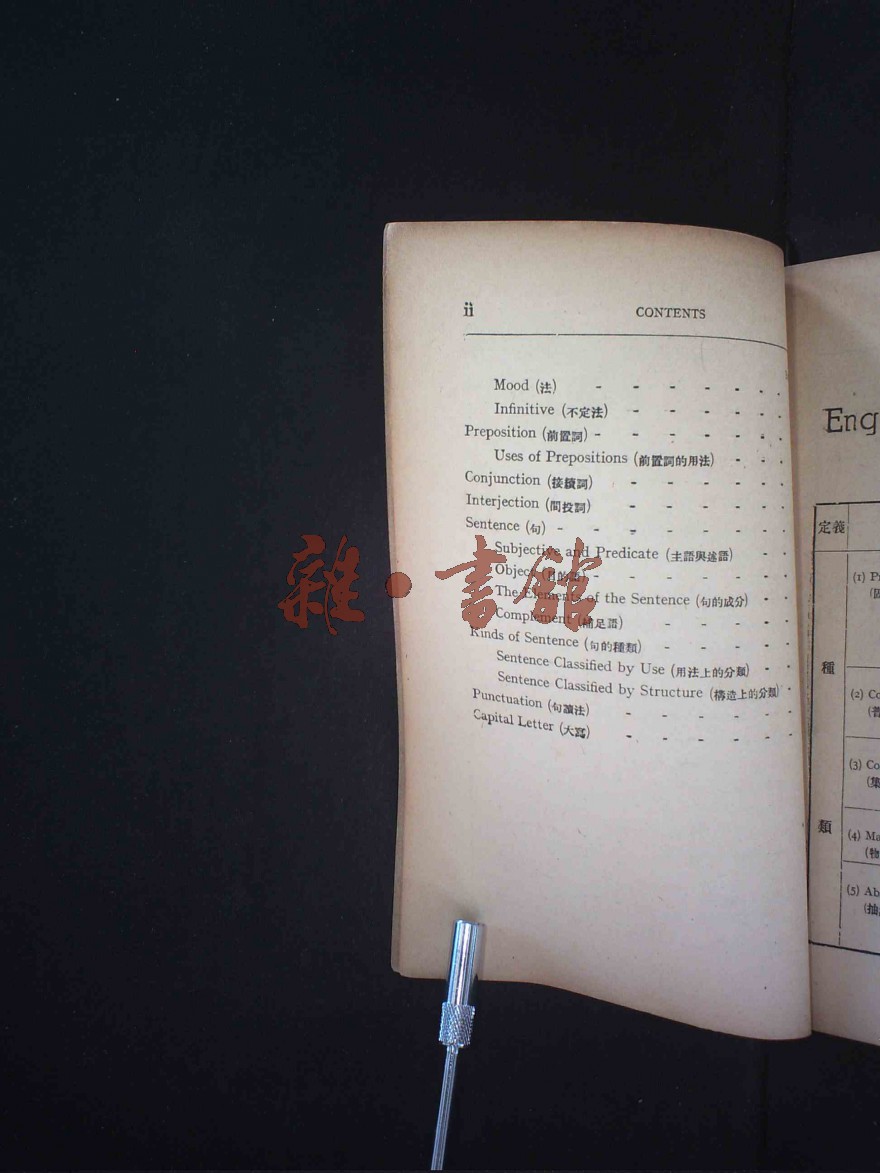 ii CONTENTS
Mood (法) - - - - - - -
Infinitive (不定法) - - - - - -
Preposition (前置詞) - - - - - - -
Uses of Prepositions (前置詞的用法) - - -
Conjunction (接續詞) - - - - - -
Interjection (間投詞) - - - - - -
Sentence (句) - - - - - - - -
Subjective and Predicate (主語與述語) - -
Object (目的語) - - - - - - -
The Elements of the Sentence (句的成分) - -
Complement (補足語) - - - - -
Kinds of Sentence (句的種類) - - - - -
Sentence Classified by Use (用法上的分類) - -
Sentence Classified by Structure (構造上的分類) -
Punctuation (句讀法) - - - - - -
Capital Letter (大寫) - - - - - -
雜·書館
Eng
定義
種
類
(1)
(2) Co
(3) Co
(4) Ma
(物
(5) Ab